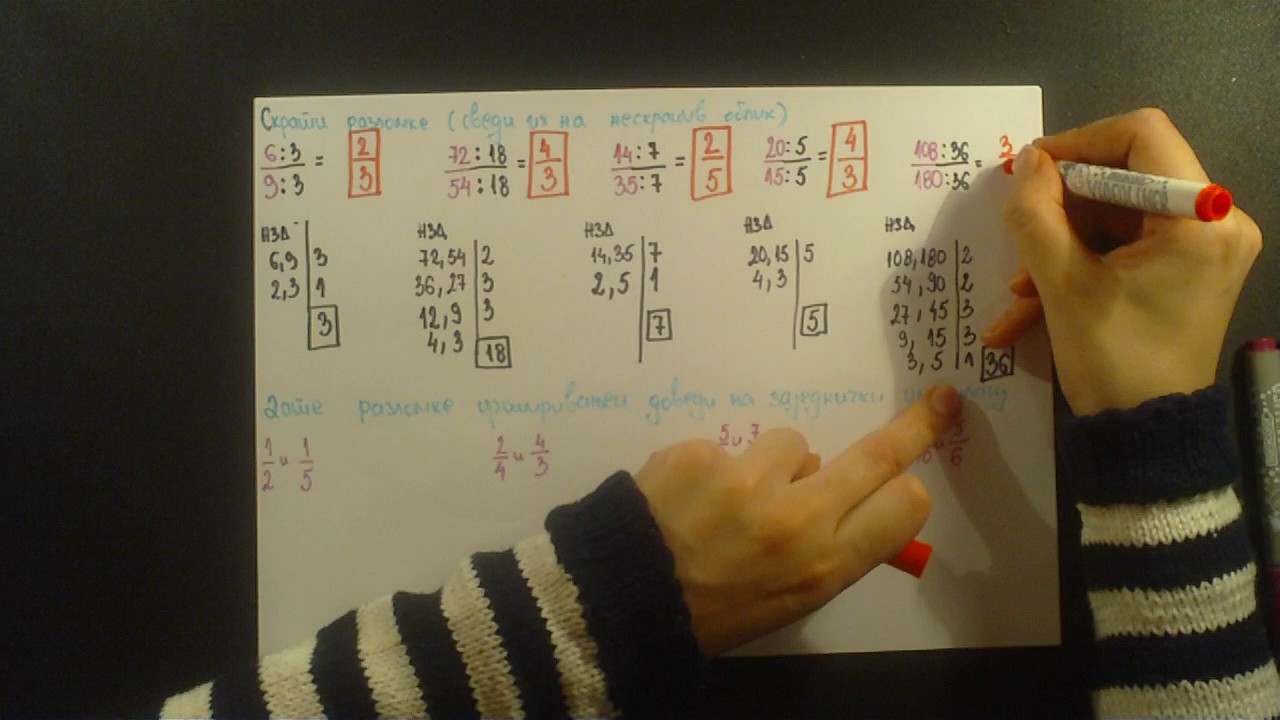 Скрати разломке (сведи их на нескратив облик)
6:3/9:3 = 2/3 72:18/54:18 = 4/3 14:7/35:7 = 2/5 20:5/15:5 = 4/3 108:36/180:36 = 3
НЗД НЗД НЗД НЗД НЗД
6,9 | 3 72,54 | 2 14,35 | 7 20,15 | 5 108,180 | 2
2,3 | 1 36,27 | 3 2,5 | 1 4,3 | 54,90 | 2
3 12,9 | 3 7 5 27,45 | 3
4,3 | 18 9,15 | 3
3,5 | 1 36
Дате разломке проширивањем доведи на заједнички
1/2 и 1/5 2/4 и 4/3 5 и 7 и 5/6